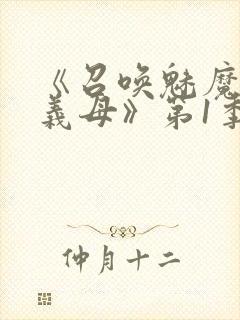 《召唤魅魔
義母》第1季
仲月十二